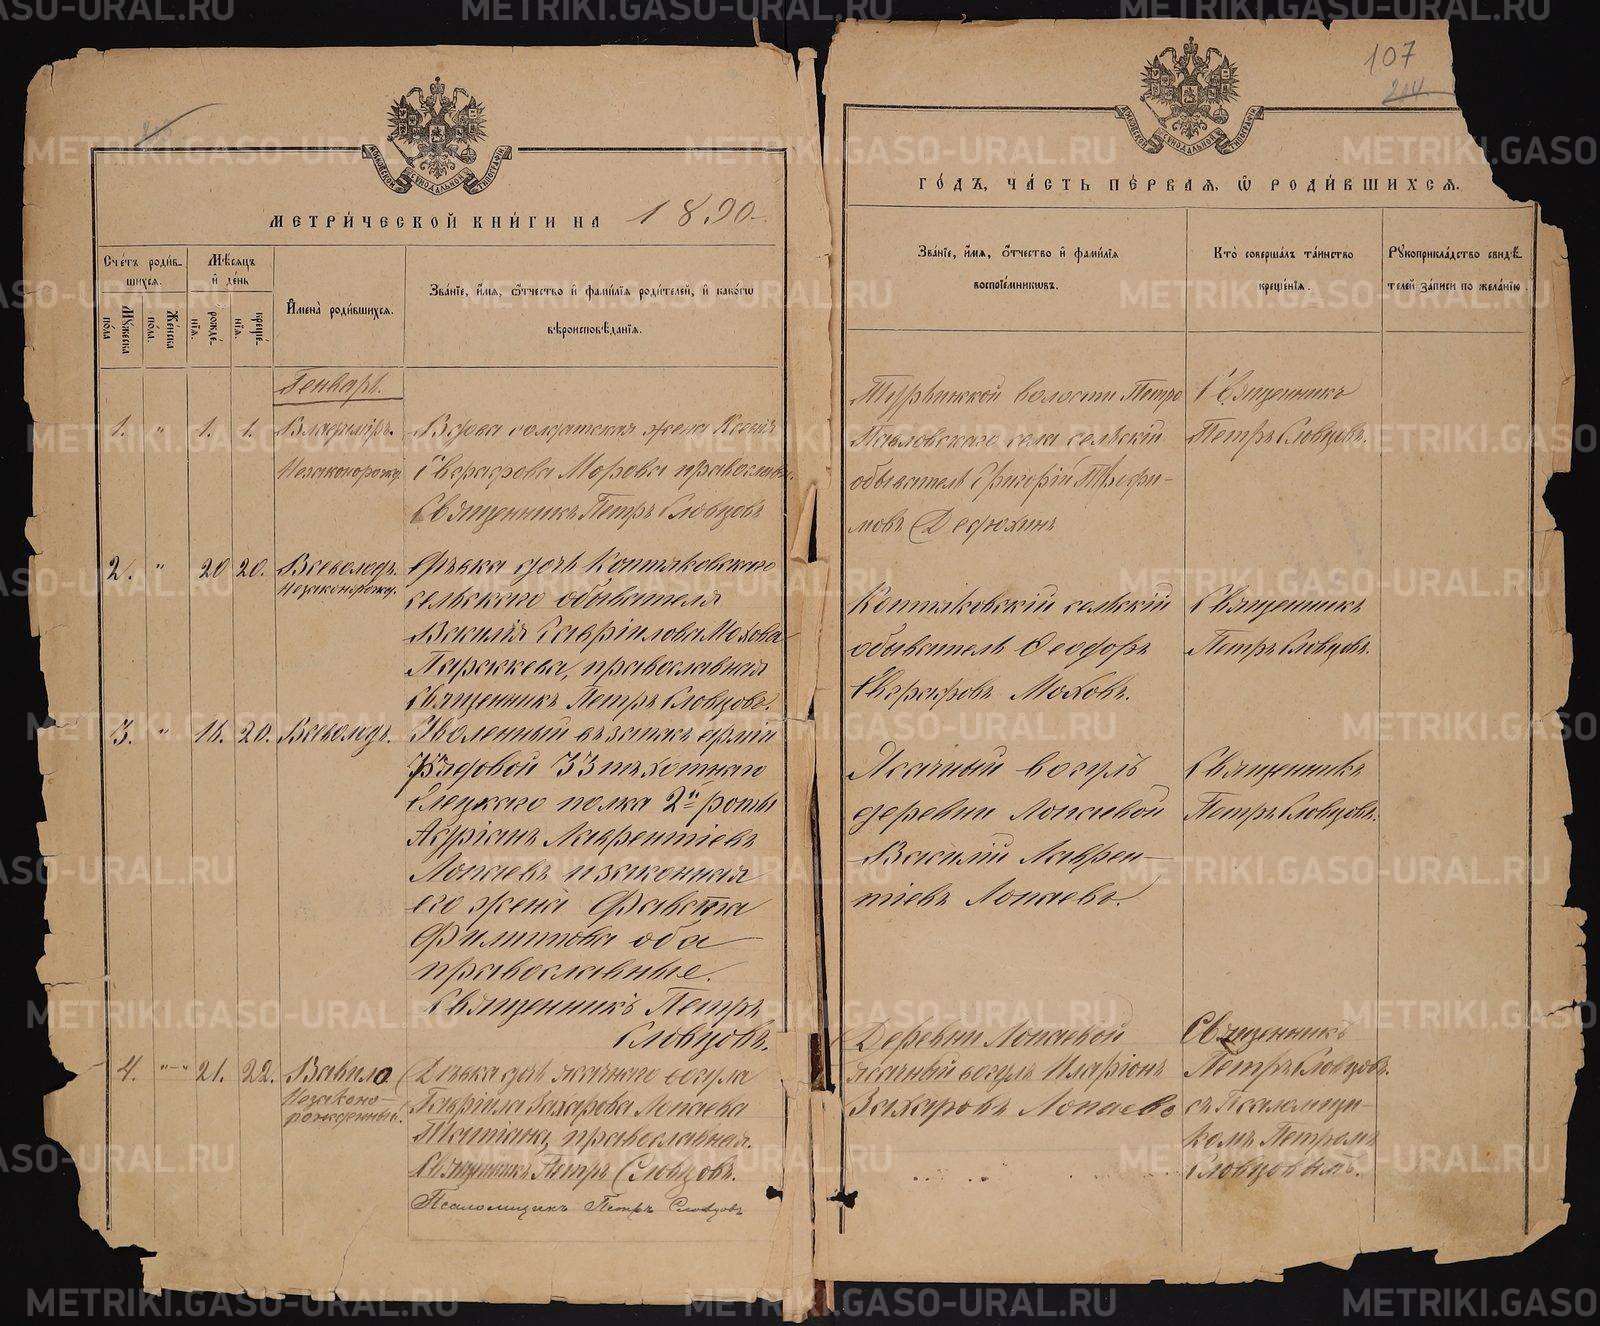 107
214
МЕТРИ́ЧЕСКОЙ КНИ́ГИ НА 1890
ГО́ДЪ, ЧА́СТЬ ПЕ́РВАЯ, Ѽ РОДИ́ВШИХСЯ.
Счетъ роди́вшихся.
Му́жеска по́ла
Же́нска по́ла.
Мѣ́сяцъ и́ де́нь
рожде́нїѧ.
креще́нїѧ.
И҆мена̀ роди́вшихсѧ.
Зва́нїе, и҆́мѧ, ѻ҆́тчество и҆ фами́лїѧ роди́телей, и҆ како́гѡ
вѣроисповѣ́данїѧ.
Зва́нїе, и҆́мѧ, ѻ҆́тчество и҆ фами́лїѧ
воспрїе́мникѡвъ.
Кто̀ соверша́лъ та́инство
креще́нїѧ.
Рꙋкоприкла́дство свидѣ́-
телей за́писи по жела́нїю.
Генварь.
1. " 1. 1. Владиміръ.
Незаконорожд.
Вдова солдатская жена Ксенія
Евграфова Морова православн.
Священникъ Петръ Словцовъ
Туринской волости Петро
Павловскаго села сельскій
обыватель Григорій Трофи-
мовъ Дедюхинъ
Священникъ
Петръ Словцовъ.
2. " 20 20. Всеволодъ.
Незаконорожд.
Дѣвка дочь Коптяковскаго
сельскаго обывателя
Василія Гавріилова Мохова
Параскева, православная
Священникъ Петръ Словцовъ.
Коптяковскій сельскій
обыватель Феодоръ
Евграфовъ Моховъ.
Священникъ
Петръ Словцовъ.
3. " 18. 20. Всеволодъ.
Уволенный въ запасъ арміи
Рядовой 33 пѣхотнаго
Елецкаго полка 2й роты
Адріанъ Лаврентіевъ
Лопаевъ и законная
его жена
Филиппова оба
православные.
Священникъ Петръ
Словцовъ.
Ясачный вогулъ
деревни Лопаевой
Василій Лаврен-
тіевъ Лопаевъ.
Священникъ
Петръ Словцовъ.
4. "-" 21. 22. Вавило
Незаконо-
рожденный.
Дѣвка дочь ясачнаго вогула
Гавріила Захарова Лопаева
Татіана, православная.
Священникъ Петръ Словцовъ.
Псаломщикъ Петръ Словцовъ
Деревни Лопаевой
ясачный вогулъ Иларіонъ
Захаровъ Лопаевъ
Священникъ
Петръ Словцовъ.
съ Псаломщи-
комъ Петромъ
Словцовымъ.
METRIKI.GASO-URAL.RU